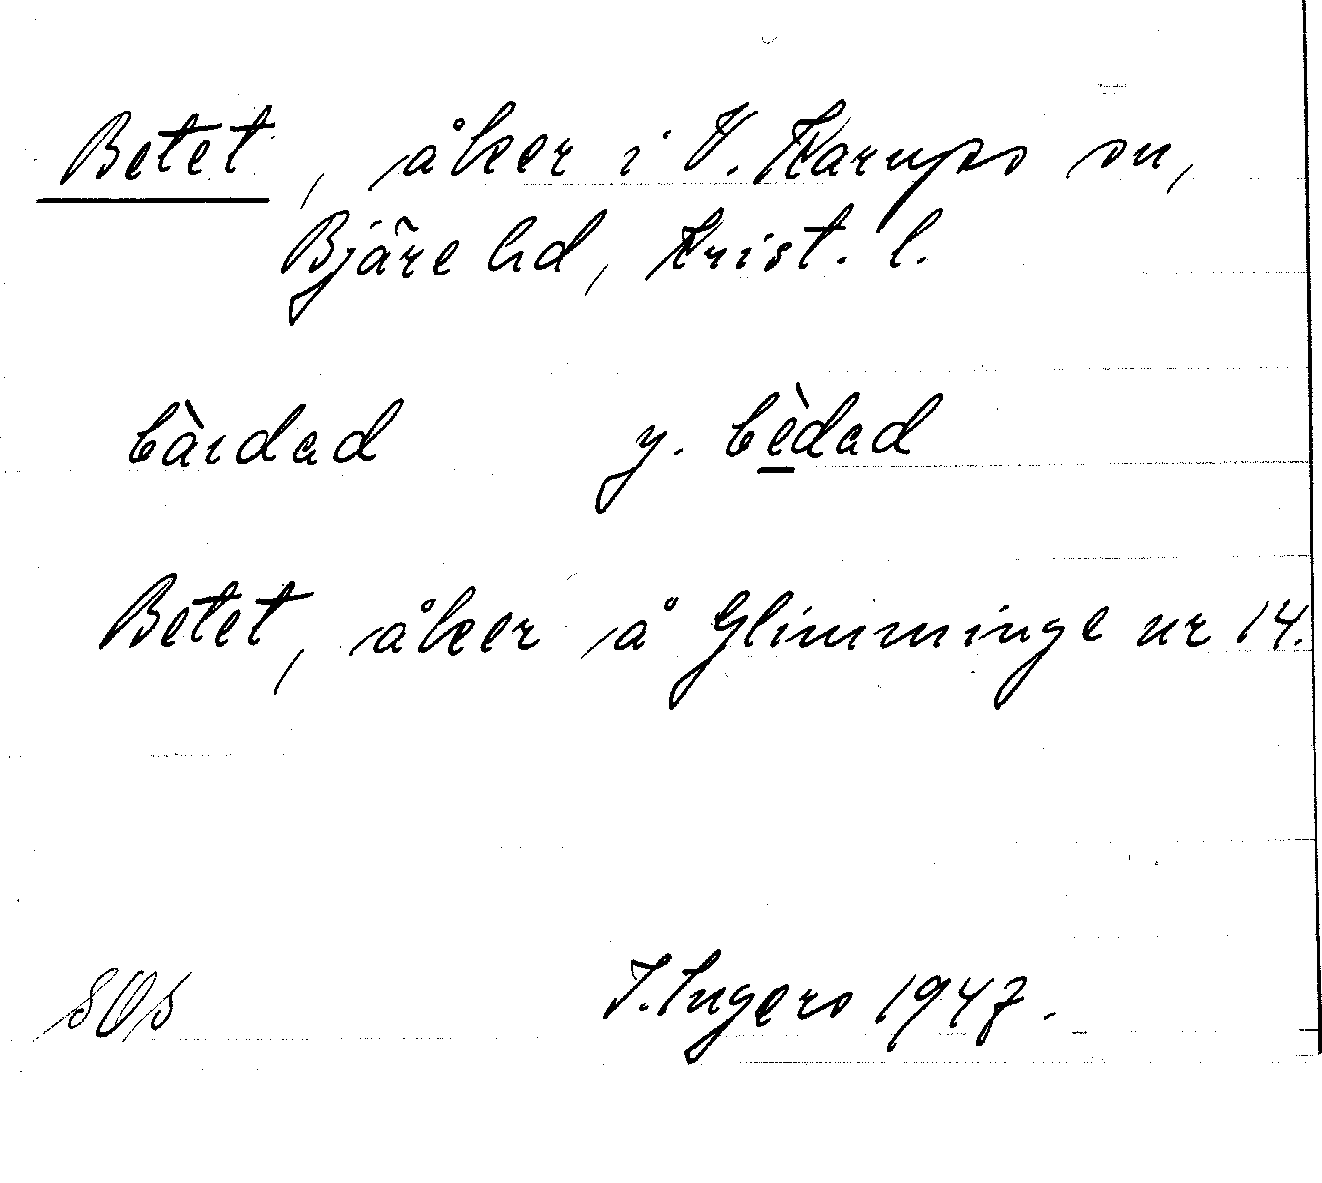 Betet, åker i V. Karups sn,
Bjäre hd, Krist. l.
bàıdad y. bèdad
Betet, åker å Glimminge nr 14.
I. Ingers 1947.